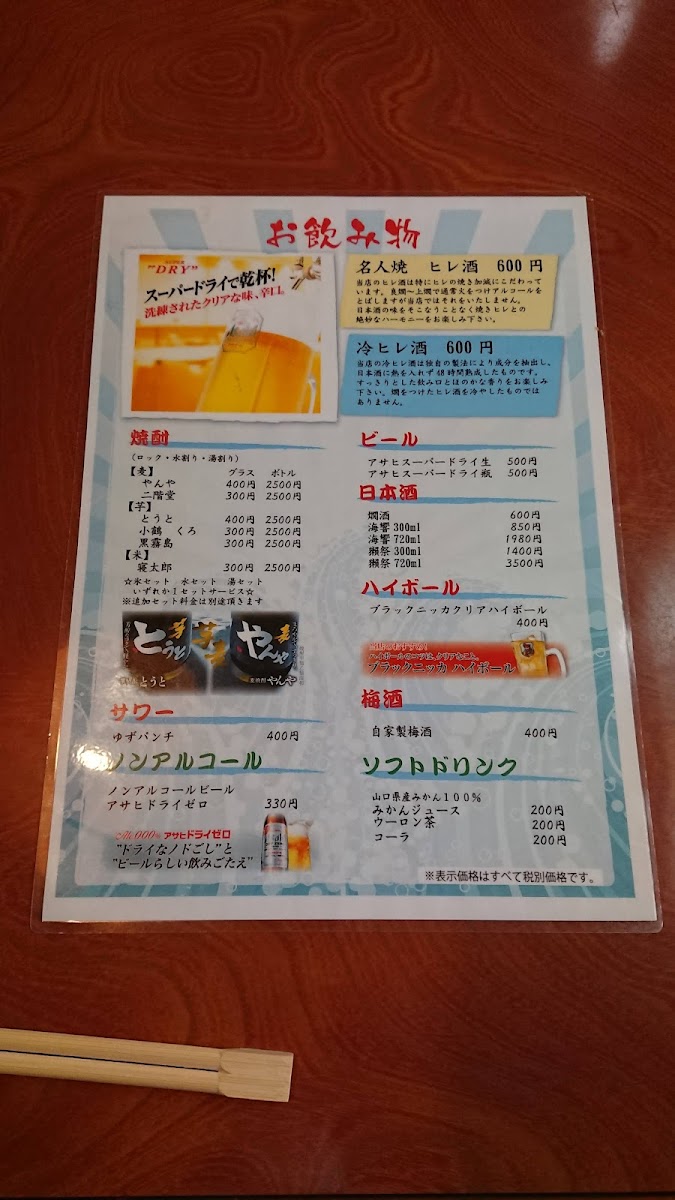 お飲み物
"DRY"
スーパードライで乾杯!
洗練されたクリアな味、辛口。
名人焼 ヒレ酒 600円
当店のヒレ酒は特にヒレの焼き加減にこだわって
います。良燗〜上燗で通常火をつけアルコールを
とばしますが当店ではそれをいたしません。
日本酒の味をそこなうことなく焼きヒレとの
絶妙なハーモニーをお楽しみ下さい。
冷ヒレ酒 600円
当店の冷ヒレ酒は独自の製法により成分を抽出し、
日本酒に熱を入れず48時間熟成したものです。
すっきりとした飲み口とほのかな香りをお楽しみ
下さい。燗をつけたヒレ酒を冷やしたものでは
ありません。
焼酎
(ロック・水割り・湯割り)
【麦】 グラス ボトル
やんや 400円 2500円
二階堂 300円 2500円
【芋】
とうと 400円 2500円
小鶴 くろ 300円 2500円
黒霧島 300円 2500円
【米】
寝太郎 300円 2500円
☆氷セット 水セット 湯セット
いずれか1セットサービス☆
※追加セット料金は別途頂きます
芋 とうと
麦 やんや
とうと
麦焼酎 やんや
サワー
ゆずパンチ 400円
ノンアルコール
ノンアルコールビール
アサヒドライゼロ 330円
Alc.0.00% アサヒドライゼロ
"ドライなノドごし"と
"ビールらしい飲みごたえ"
ビール
アサヒスーパードライ生 500円
アサヒスーパードライ瓶 500円
日本酒
燗酒 600円
海響 300ml 850円
海響 720ml 1980円
獺祭 300ml 1400円
獺祭 720ml 3500円
ハイボール
ブラックニッカクリアハイボール
400円
ハイボールのコツは、クリアなこと。
ブラックニッカ ハイボール
梅酒
自家製梅酒 400円
ソフトドリンク
山口県産みかん100%
みかんジュース 200円
ウーロン茶 200円
コーラ 200円
※表示価格はすべて税別価格です。